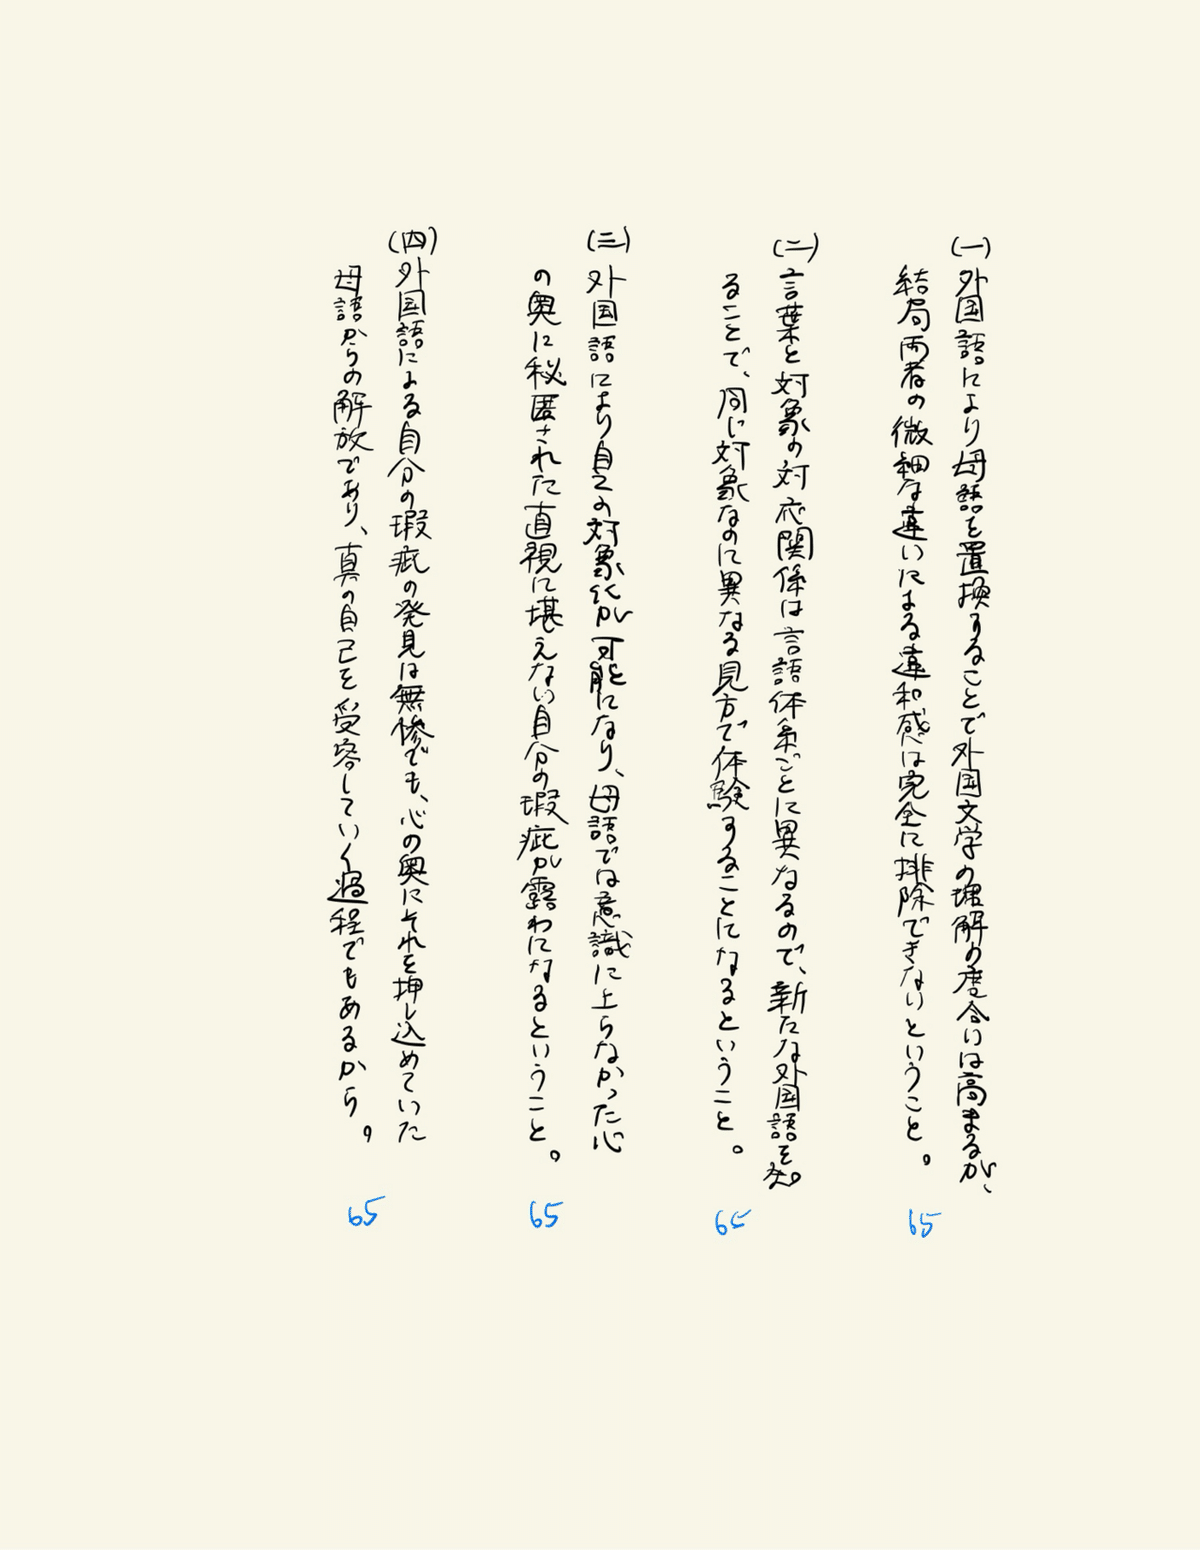 (一)外国語により母語を置換することで外国文学の理解の度合いは高まるが、
結局両者の微細な違いによる違和感は完全に排除できないということ。
65
(二)言葉と対象の対応関係は言語体系ごとに異なるので、新たな外国語を知
ることで、同じ対象なのに異なる見方で体験することになるということ。
65
(三)外国語により自己の対象化が可能になり、母語では意識に上らなかった心
の奥に秘匿された直視に堪えない自分の瑕疵が露わになるということ。
65
(四)外国語による自分の瑕疵の発見は無惨でも、心の奥にそれを押し込めていた
母語からの解放であり、真の自己を受容していく過程でもあるから。
65